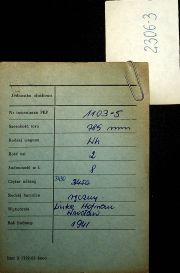 2306-3
Jednostka służbowa
Nr inwentarza PKP 1103-5
Szerokość toru 785 mm
Rodzaj wagonu Wh
Ilość osi 2
Ładowność w t. 8
Ciężar własny 3450
Rodzaj hamulca ręczny
Wytwórnia Linke Hofman
Rok budowy 1941